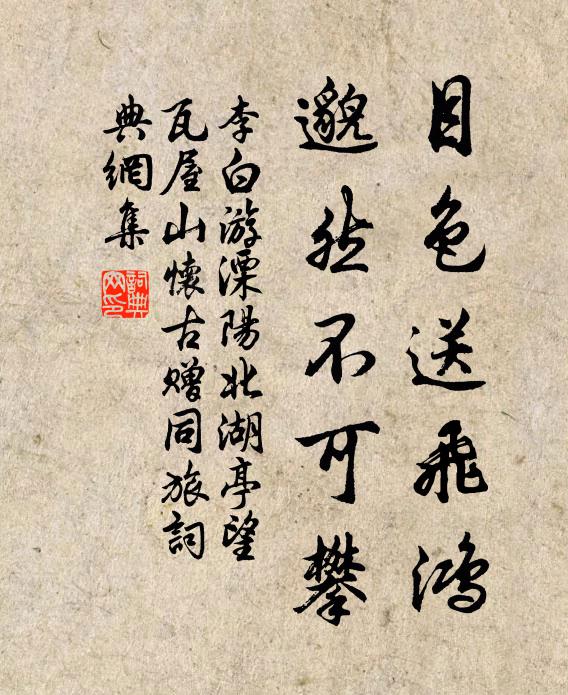 目色送飛鴻
邈然不可攀
李白游溧陽北湖亭望
瓦屋山懷古贈同旅詞
典網集
詞典網印